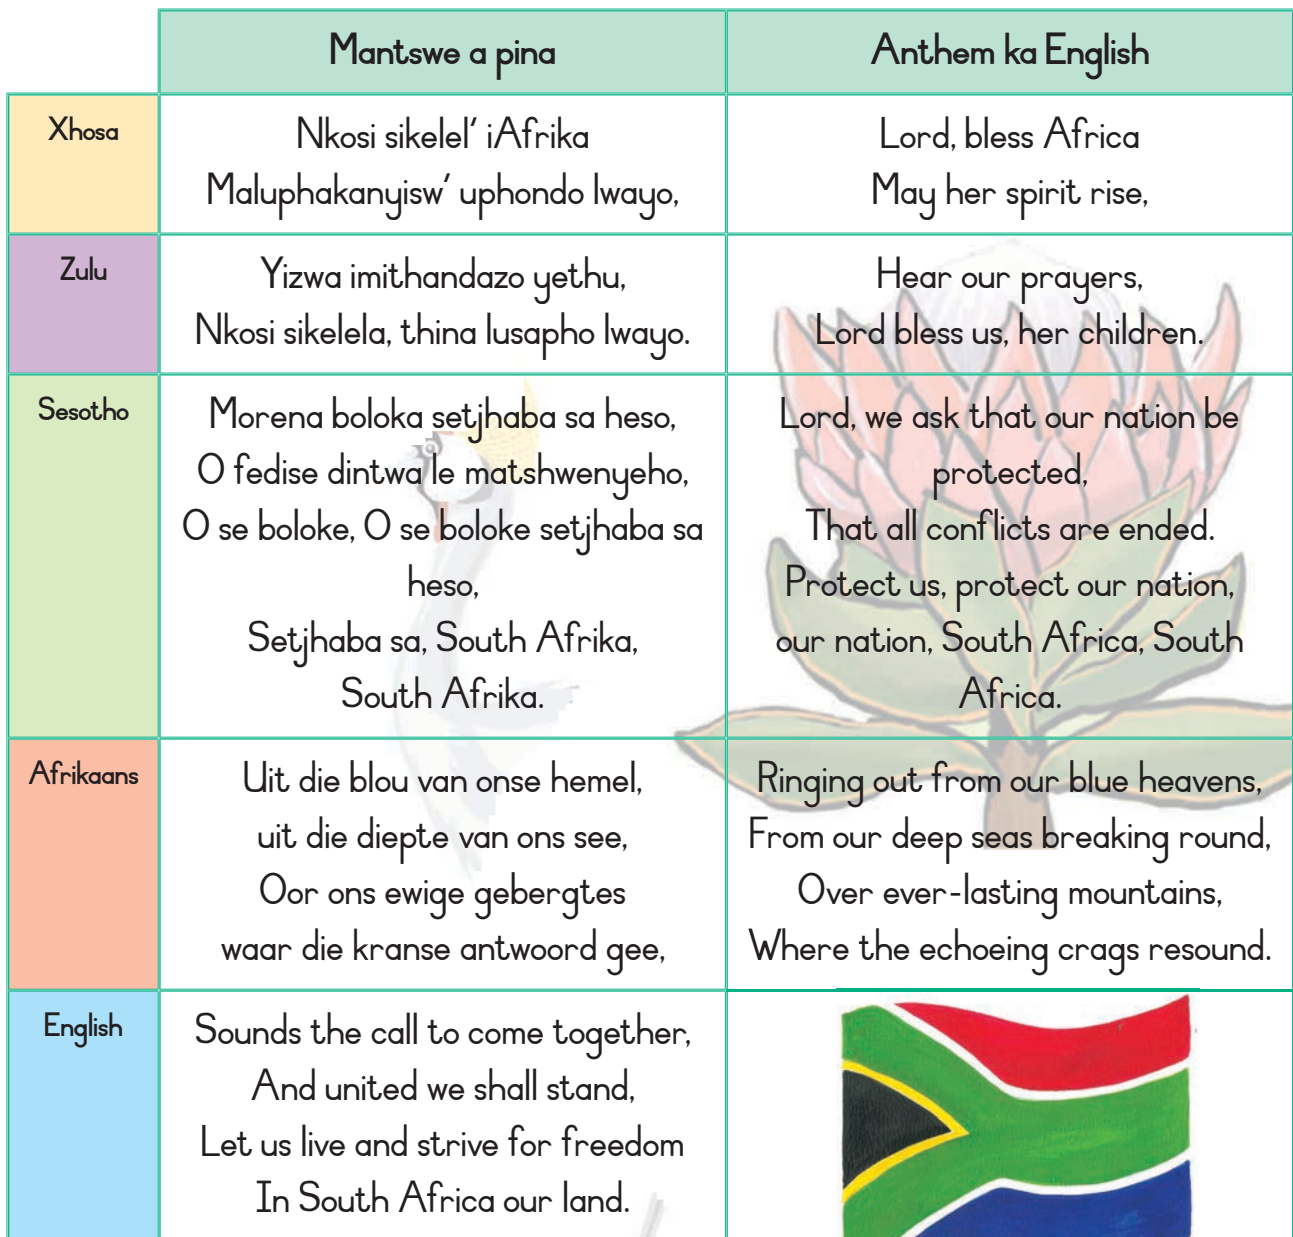 Mantswe a pina
Anthem ka English
Xhosa
Nkosi sikelel' iAfrika
Maluphakanyisw' uphondo lwayo,
Lord, bless Africa
May her spirit rise,
Zulu
Yizwa imithandazo yethu,
Nkosi sikelela, thina lusapho lwayo.
Hear our prayers,
Lord bless us, her children.
Sesotho
Morena boloka setjhaba sa heso,
O fedise dintwa le matshwenyeho,
O se boloke, O se boloke setjhaba sa
heso,
Setjhaba sa, South Afrika,
South Afrika.
Lord, we ask that our nation be
protected,
That all conflicts are ended.
Protect us, protect our nation,
our nation, South Africa, South
Africa.
Afrikaans
Uit die blou van onse hemel,
uit die diepte van ons see,
Oor ons ewige gebergtes
waar die kranse antwoord gee,
Ringing out from our blue heavens,
From our deep seas breaking round,
Over ever-lasting mountains,
Where the echoeing crags resound.
English
Sounds the call to come together,
And united we shall stand,
Let us live and strive for freedom
In South Africa our land.